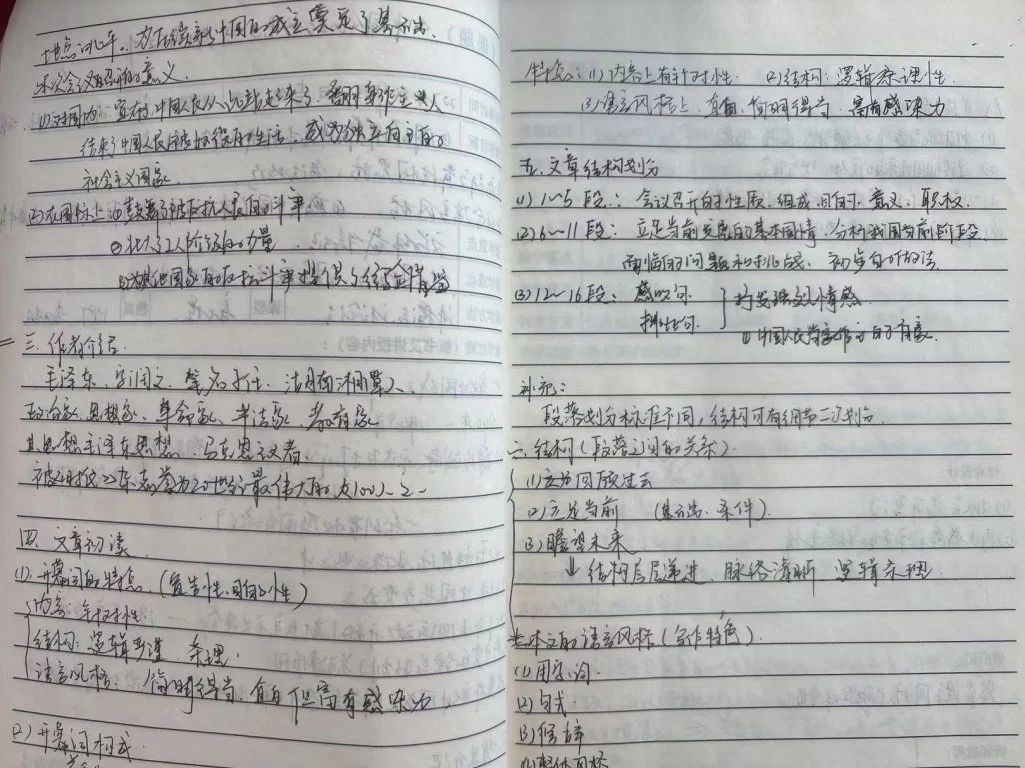 地点：北平。为在给新中国的成立奠定了基础。
本次会议召开的意义
(1)对国内：宣布中国人民从此站起来了，翻身当家作主人
结束了中国人民被奴役的生活，成为独立自主的
社会主义国家
(2)在国际上：鼓舞了被压抗人民的斗争
①壮大了人阶级的力量
②为其他国家的反抗斗争提供了经验
三、作者介绍：
毛泽东，字润之，笔名子任，湖南湘潭人、
政治家、思想家、革命家、书法家、教育家
其思想毛泽东思想，马克思主义者
被时代杂志誉为20世纪最伟大的人100人之一
四、文章初读
(1)、开幕词的特点（宣告性、目的性）
内容：针对性
结构：逻辑严谨 条理
语言风格：简明得当，直白但富有感味力
(2)开幕词构成：
特点：(1)内容上有针对性 (2)结构：逻辑条理性
(3)语言风格上，直白，简明得当，富有感味力
五、文章结构划分
(1)1~5段：会议召开的性质、组成、目的、意义、职权.
(2)6~11段：立足当前中国的基本国情，分析我国当前阶段
面临的问题和挑战，初步的做法
(3)12~16段：感叹句 抒发强烈情感
排比句 中国人民当家作主的自豪
补充：
段落划分标准不同，结构可有细节二次划分
六、结构（段落之间的关系）
(1)立足回顾过去
(2)立足当前 （基础、条件）
(3)瞻望未来
↓结构层层递进，脉络清晰，逻辑条理.
七、本文的语言风格（写作特色）
(1)用字、词
(2)句式：
(3)修辞
(4)整体风格